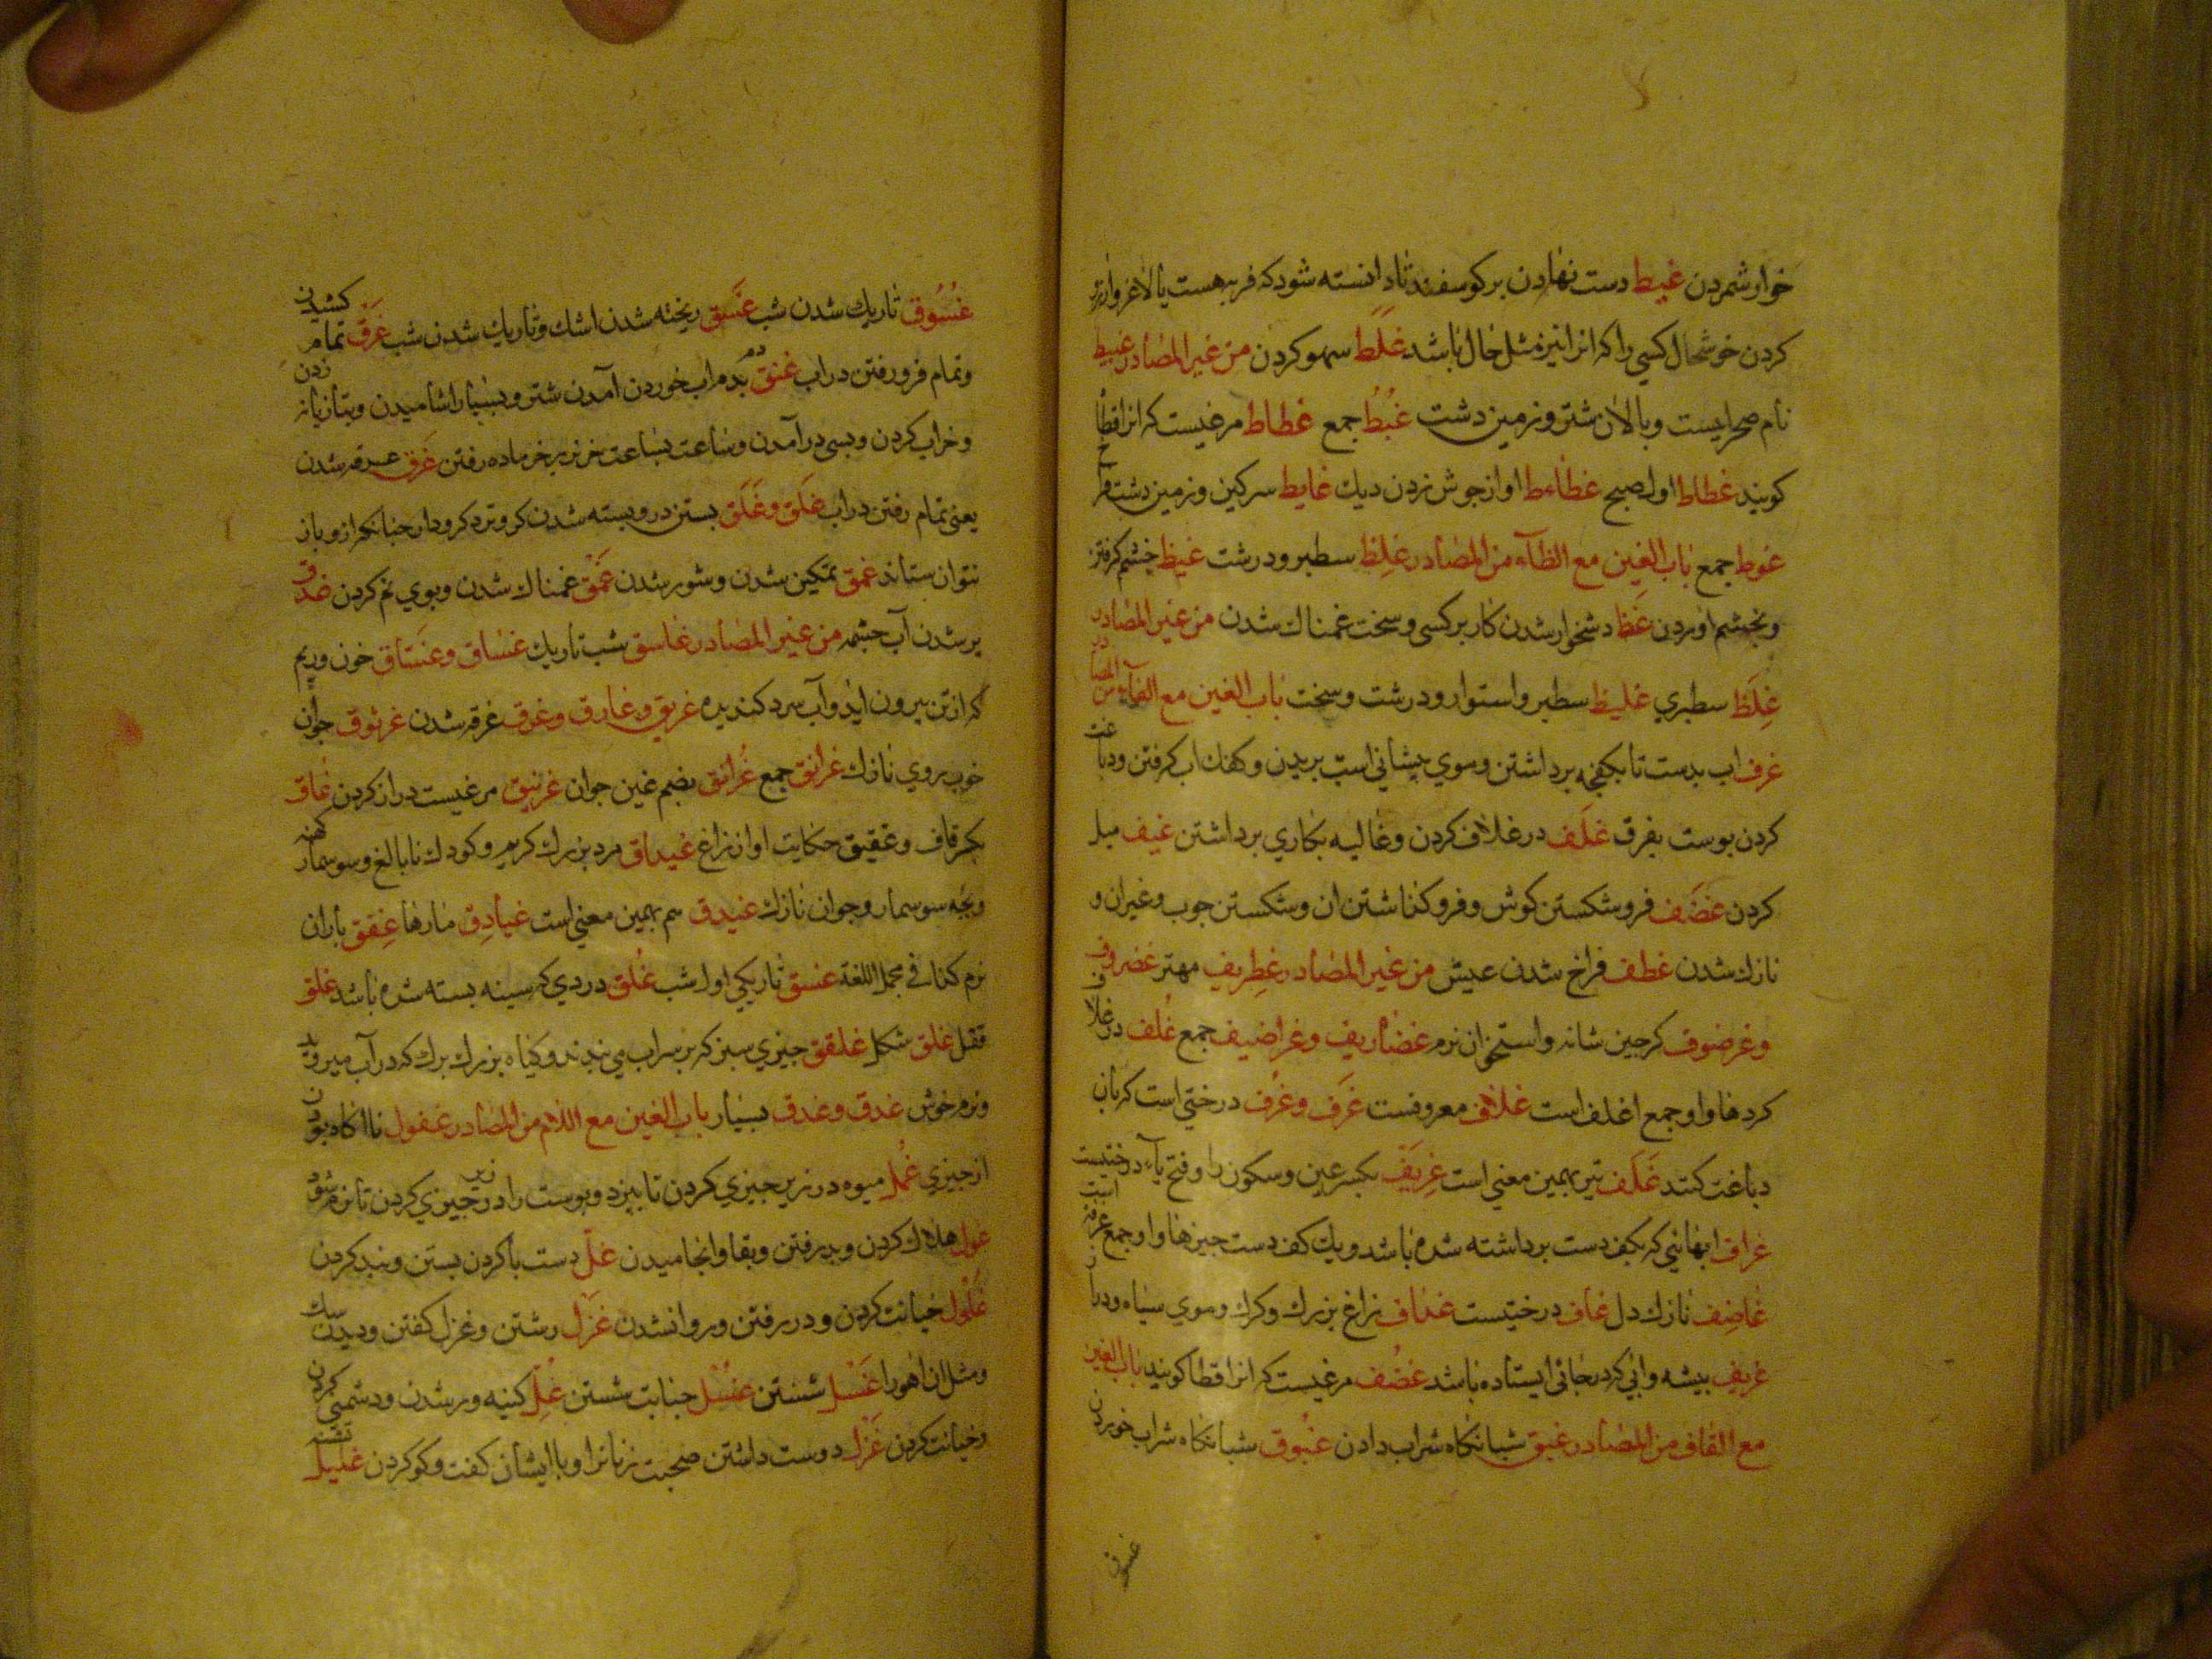 خوار شمردن غیط دست نهادن بر کوسفند تا دانسته شود که فربه هست یا لاغر و ارزو
کردن خوشحال کسی را که انرا نیز مثل حال باشد غلط سهو کردن من غیر المصادر غبیط
نام صحرایست و بالان شتر و زمین دشت غبط جمع غطاط مرغیست که انرا قطا
کویند غطاط اول صبح غطاءط اواز جوش زدن دیك غایط سرکین و زمین دشت
غوط جمع باب الغین مع الظآء من المصادر غلظ سطبر و درشت غیظ خشم کرفتن
و بخشم اوردن غظ دشخوار شدن کار بر کسی و سخت غمناك شدن من غیر المصادر
غلظ سطبری غلیظ سطبر و استوار و درشت و سخت باب الغین مع الفآء من المصادر
غرف اب بدست تا بکفچه برداشتن و موی پیشانی اسب بریدن و کفك اب کرفتن و دباغت
کردن پوست بغرف غلف در غلاف کردن و غالیه بکاری برداشتن غیف میل
کردن غضف فرو شکستن کوش و فرو کذاشتن ان و شکستن جوب و غیر ان و
نازك شدن غطف فراخ شدن عیش من غیر المصادر غطریف مهتر غضروف
و غرضوف کرجین شانه و استخوان نرم غضاریف و غراضیف جمع غلف در غلاف
کردها و او جمع اغلف است غلاف معروفست غرف و غرف درختی است که بان
دباغت کنند غلف نیز بهمین معنی است غریف بکسر عین و سکون را و فتح یآء درختیست
غراف ابهائی که بکف دست برداشته شده باشد و یك کف دست جیزها و او جمع غرفه است
غاضف نازك دل غاف درختیست غداف زاغ بزرك و کرك و موی سیاه و دراز
غریف بیشه و ابی که در جائی ایستاده باشد غضف مرغیست که انرا قطا کویند باب الغین
مع القاف من المصادر غبق شبانکاه شراب دادن غبوق شبانکاه شراب خوردن
غسوق
غسوق تاریك شدن شب غسق ریخته شدن اشك و تاریك شدن شب غرق تمام کشیدن
و تمام فرو رفتن در اب غنق بدم اب خوردن آمدن شتر و بسیار اشامیدن و بتازیانه زدن
و خراب کردن و بسی در آمدن و ساعت بساعت خر نر بر خر ماده رفتن غرق غرقه شدن
یعنی تمام رفتن در اب غلق و غلق بستن در و بسته شدن کرو نزد کرودار جنانکه ازو باز
نتوان ستاند غمق نمکین شدن و شور شدن غمق غمناك شدن و بوی نم کردن غدق
پر شدن آب جشمه من غیر المصادر غاسق شب تاریك غساق و غساق خون و ریم
که از تن بیرون اید و آب سرد کندیده غریق و غارق و غرق غرقه شدن غرنوق جوان
خوب روی نازك غرانق جمع غرانق بضم غین جوان غرنیق مرغیست دراز کردن غاق
بکسر قاف و غقیق حکایت اواز زاغ غیداق مرد بزرك کریم و کودك نابالغ و سوسمار کهنه
و بجه سوسمار و جوان نازك غیدق هم بهمین معنی است غیادق مارها غقق باران
نرم کذا فی مجمل اللغة غسق تاریکی اول شب غلق در دی که سینه بسته شده باشد غلق
قفل غلق شکل غلفق جیزی سبز که بر سر اب می بندد و کیاه بزرك برك که در آب میروید
و نرم خوش غدق و غدق بسیار باب الغین مع اللام من المصادر غفول نااکاه بودن
از جیزی غمل میوه در زیر جیزی کردن تا بپزد و پوست را در زیر جیزی کردن تا نرم شود
غول هلاك کردن و بدر رفتن و بقا وانجامیدن غل دست با کردن بستن و بند کردن
غلول خیانت کردن و در رفتن و روان شدن غزل رشتن و غزل کفتن و دیدن سك
و مثل ان اهو را غسل شستن غسل جنابت شستن غل کینه ور شدن و دشمنی کردن
و خیانت کردن غزل دوست داشتن صحبت زنانرا و با ایشان کفت و کو کردن غلیل تشنه